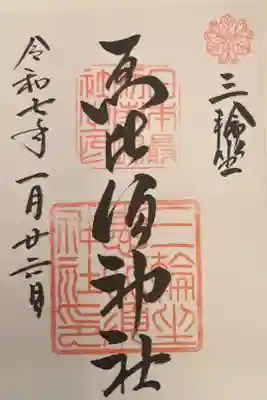 三輪坐
恵比須神社
令和七年一月廿六日
日本最
三輪坐
神社印